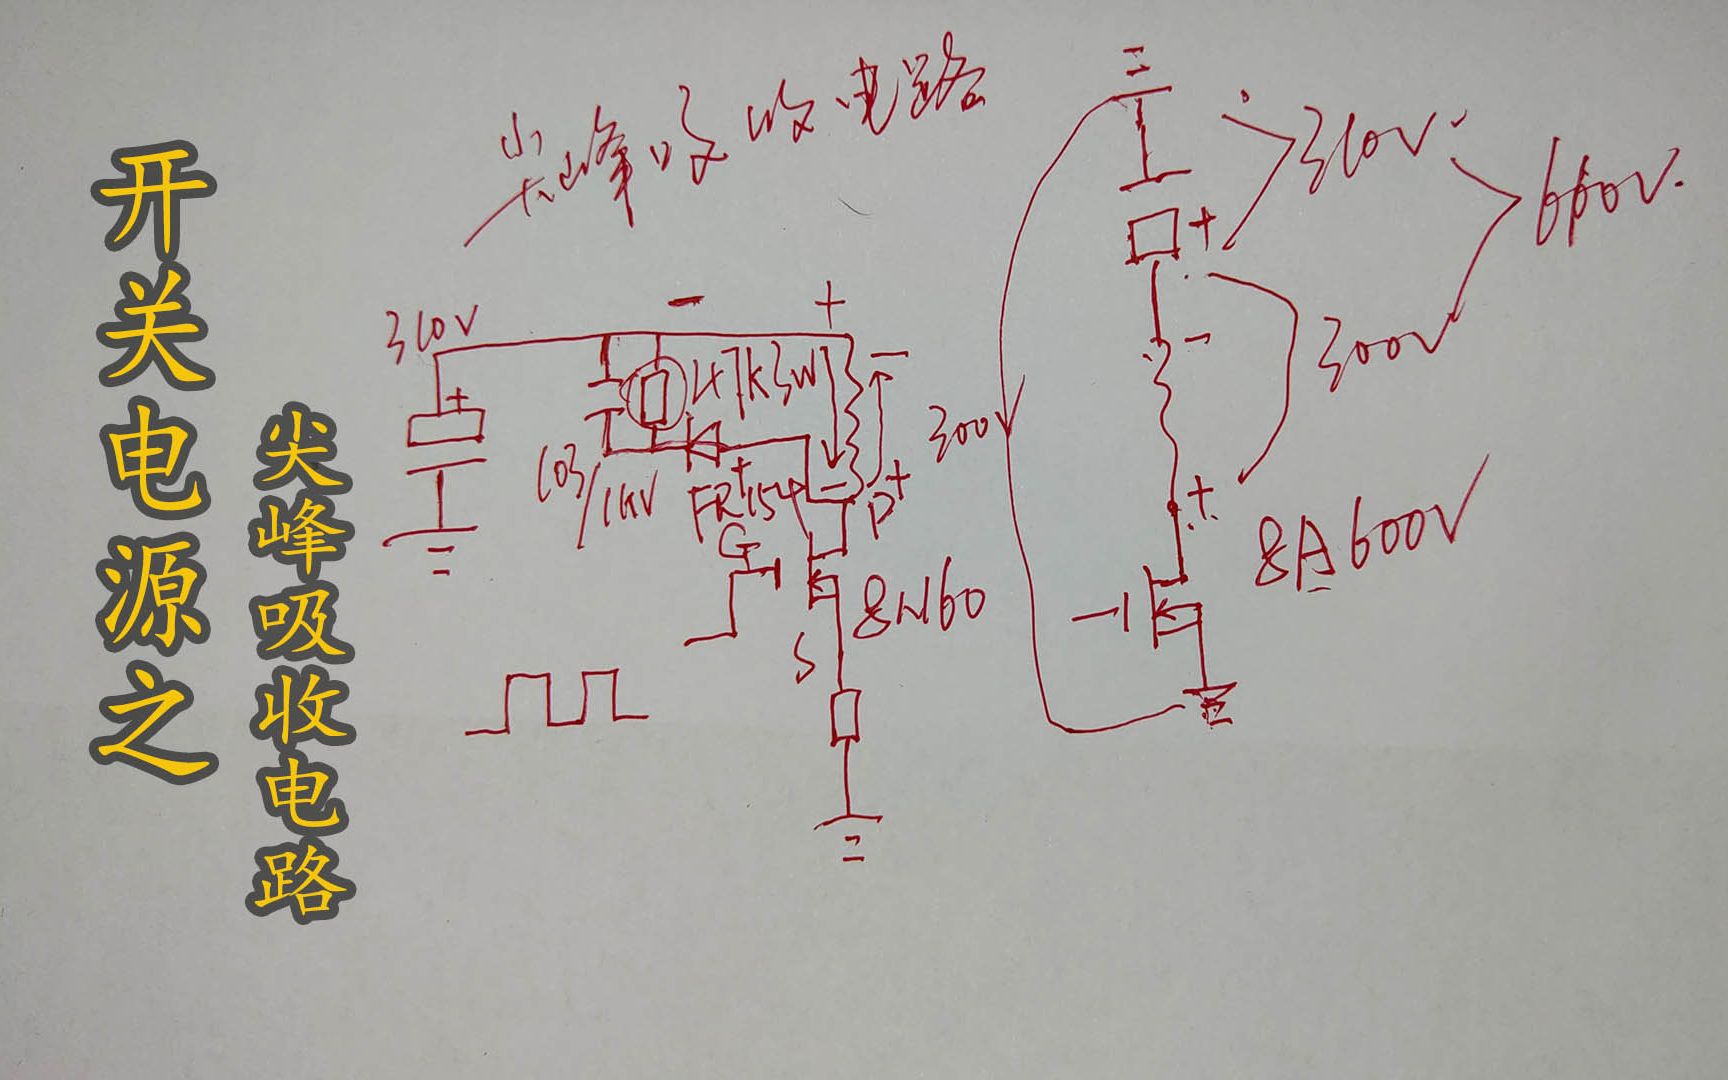 开关电源之
尖峰吸收电路
尖峰吸收电路
310V
-
+
+
47K3W
-
103/1KV
+
FR154
-
P+
G
S
8N60
310V
+
-
300V
300V
+
660V
8A600V